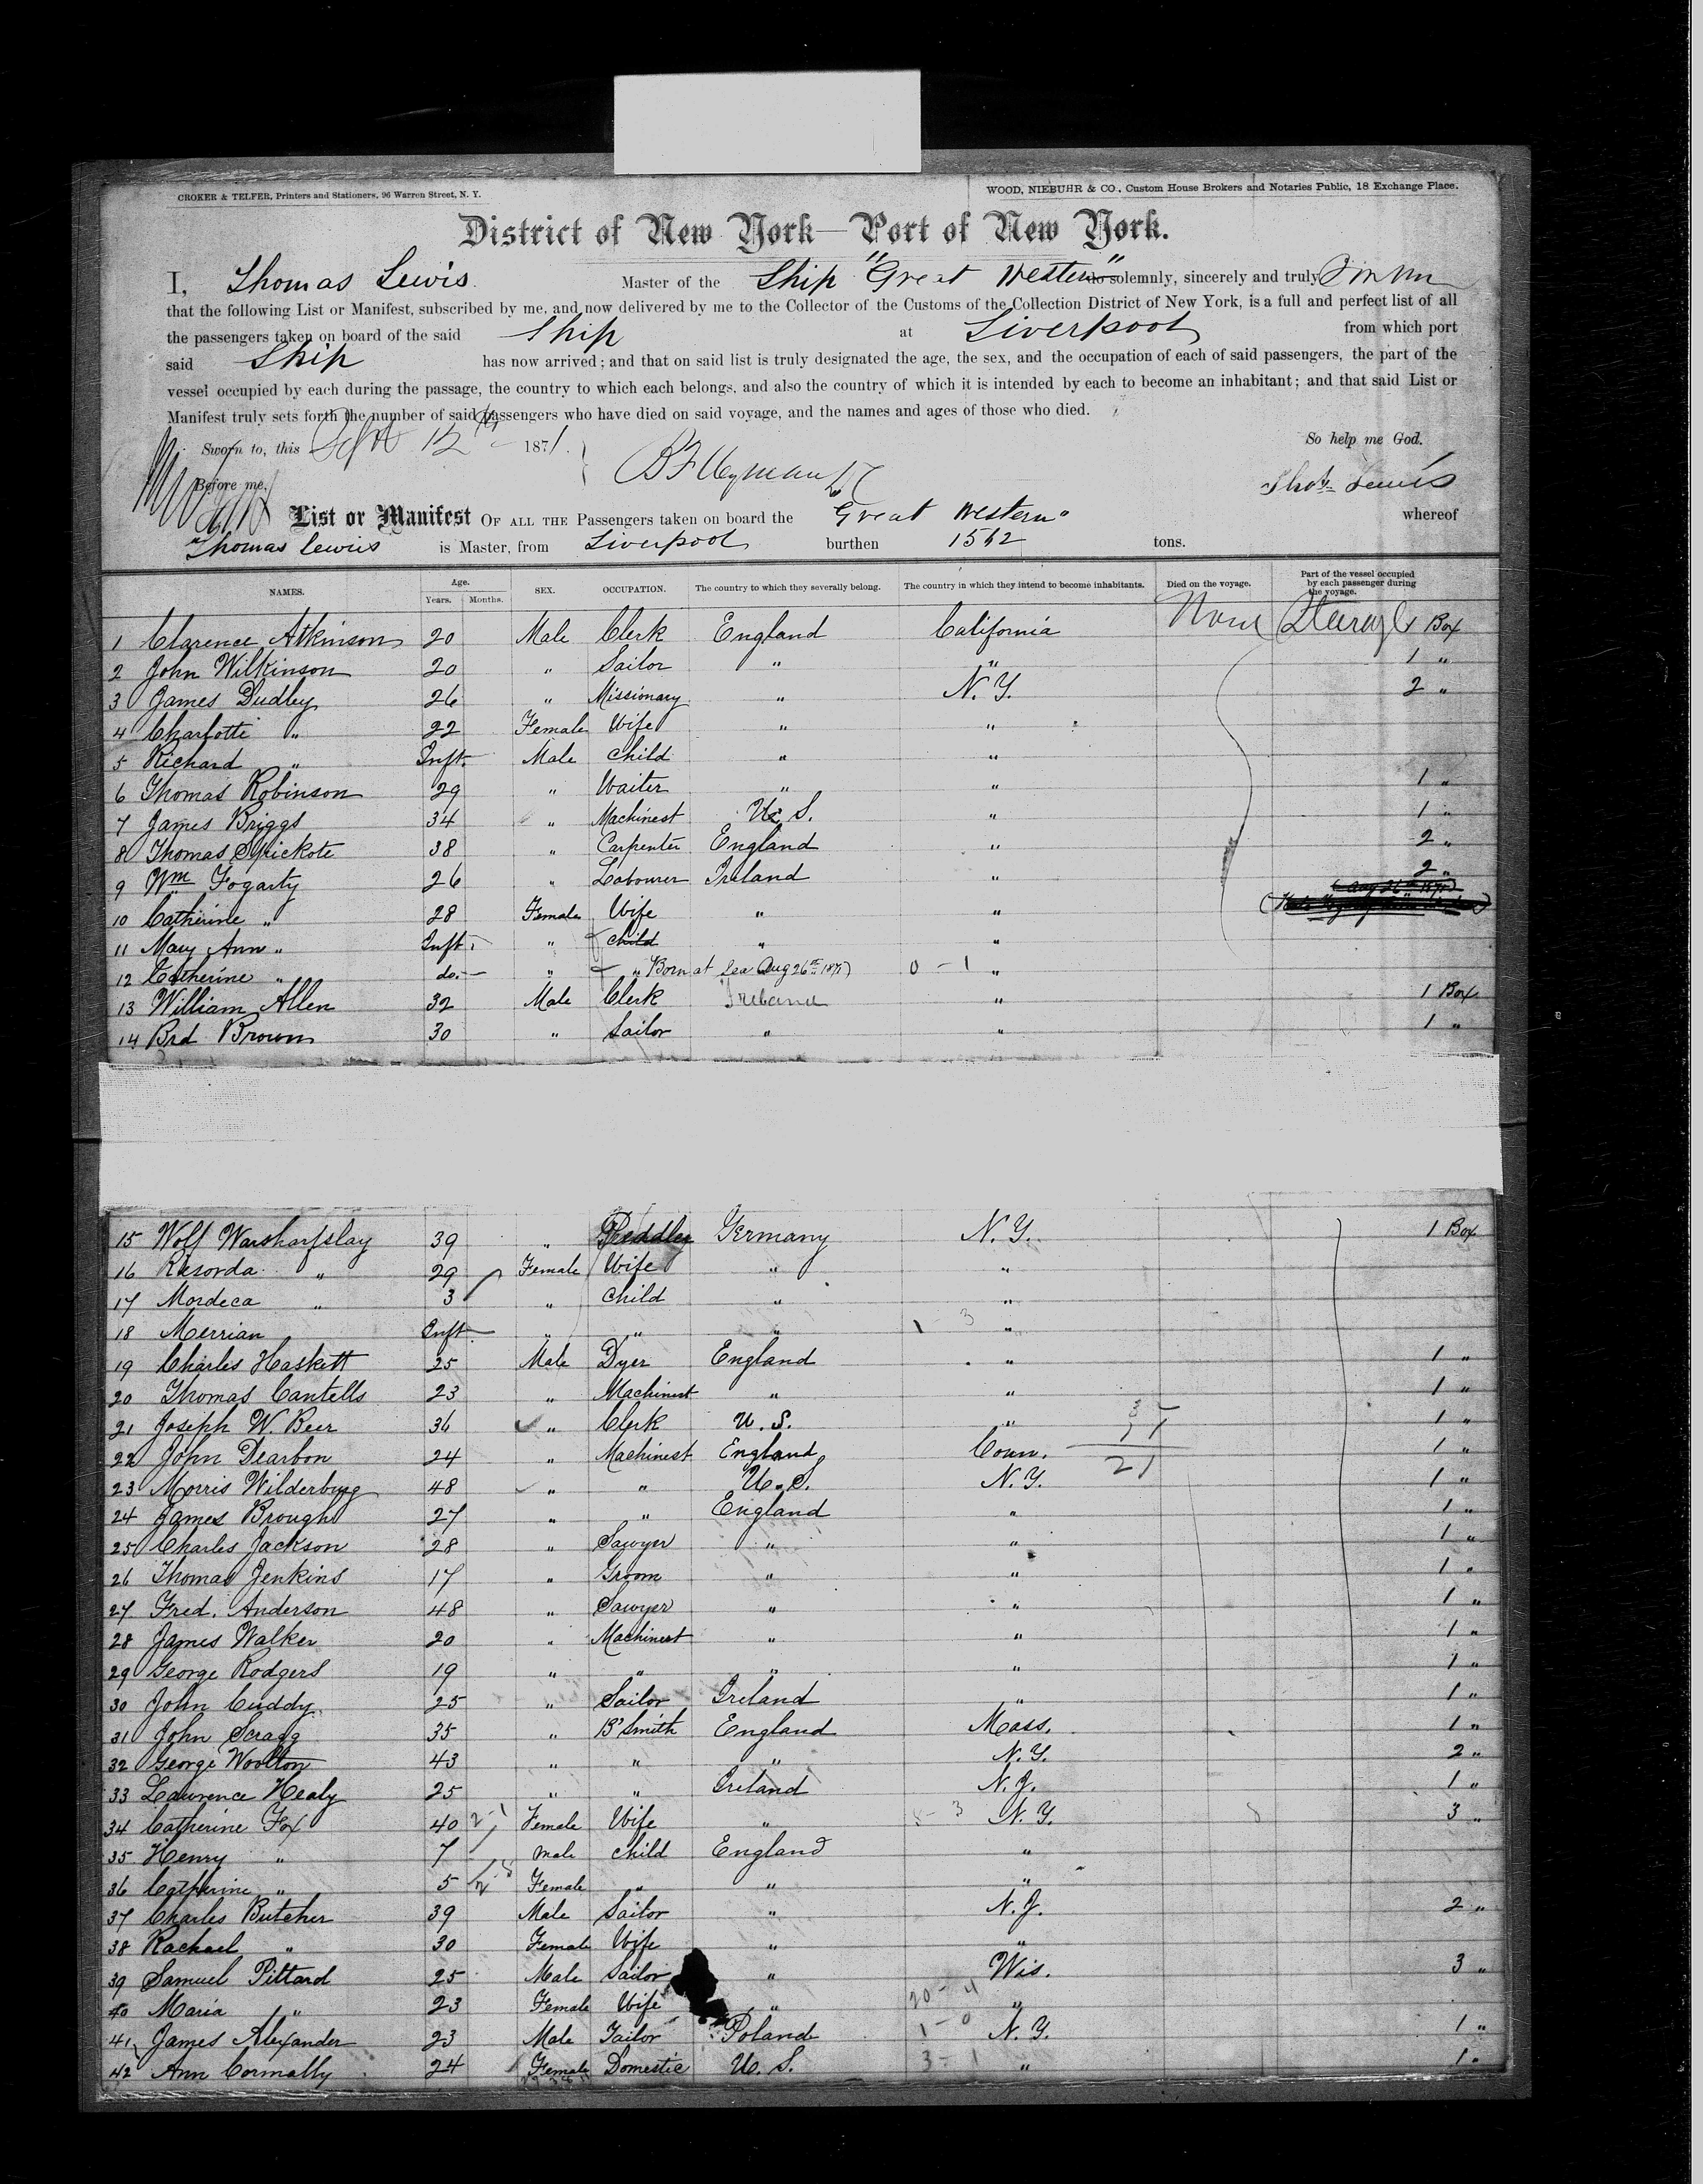 CROKER & TELFER, Printers and Stationers, 96 Warren Street, N. Y.
WOOD, NIEBUHR & CO., Custom House Brokers and Notaries Public, 18 Exchange Place.
District of New York—Port of New York.
I, Thomas Lewis Master of the Ship "Great Western" do solemnly, sincerely and truly
that the following List or Manifest, subscribed by me, and now delivered by me to the Collector of the Customs of the Collection District of New York, is a full and perfect list of all
the passengers taken on board of the said Ship at Liverpool from which port
said Ship has now arrived; and that on said list is truly designated the age, the sex, and the occupation of each of said passengers, the part of the
vessel occupied by each during the passage, the country to which each belongs, and also the country of which it is intended by each to become an inhabitant; and that said List or
Manifest truly sets forth the number of said passengers who have died on said voyage, and the names and ages of those who died.
Sworn to, this Sept 12th 1871. So help me God.
Before me, Thos Lewis
List or Manifest OF ALL THE Passengers taken on board the Great Western" whereof
Thomas Lewis is Master, from Liverpool burthen 1542 tons.
NAMES. Age. Years. Months. SEX. OCCUPATION. The country to which they severally belong. The country in which they intend to become inhabitants. Died on the voyage. Part of the vessel occupied by each passenger during the voyage.
1 Clarence Atkinson 20 Male Clerk England California None Steerage 1 Box
2 John Wilkinson 20 " Sailor " " 1 "
3 James Dudley 26 " Missionary " N. Y. 2 "
4 Charlotti " 22 Female Wife " "
5 Richard " Inft. Male Child " "
6 Thomas Robinson 29 " Waiter " " 1 "
7 James Briggs 34 " Machinest U. S. " 1 "
8 Thomas 38 " Carpenter England " 2 "
9 Wm Fogarty 26 " Labourer Ireland " 2 "
10 Catherine " 28 Female Wife " "
11 Mary Ann " Inft. " Child " "
12 Catherine " do. " " (Born at Sea Aug 26th 1871) 0 - 1 "
13 William Allen 32 Male Clerk Ireland " 1 Box
14 Brd Brown 30 " Sailor " " 1 "
15 Wolf Warsharfslay 39 " Peddler Germany N. Y. 1 Box
16 Risorda " 29 Female Wife " "
17 Mordeca " 3 " Child " "
18 Merrian Inft. " " " 1 - 3 "
19 Charles Haskett 25 Male Dyer England " 1 "
20 Thomas Cantells 23 " Machinest " " 1 "
21 Joseph W. Beer 36 " Clerk U. S. " 1 "
22 John Dearbon 24 " Machinest England Conn. 21 1 "
23 Morris Wilderburg 48 " " U. S. N. Y. 1 "
24 James Brough 27 " " England " 1 "
25 Charles Jackson 28 " Sawyer " " 1 "
26 Thomas Jenkins 17 " Groom " " 1 "
27 Fred. Anderson 48 " Sawyer " " 1 "
28 James Walker 20 " Machinest " " 1 "
29 George Rodgers 19 " " " " 1 "
30 John Cuddy 25 " Sailor Ireland " 1 "
31 John Scragg 35 " B'Smith England Mass. 1 "
32 George Woolton 43 " " " N. Y. 2 "
33 Lawrence Healy 25 " " Ireland N. J. 1 "
34 Catherine Fox 40 Female Wife " N. Y. 3 "
35 Henry " 7 Male Child England "
36 Catherine " 5 Female " " "
37 Charles Butcher 39 Male Sailor " N. J. 2 "
38 Rachael " 30 Female Wife " "
39 Samuel Pittard 25 Male Sailor " Wis. 3 "
40 Maria " 23 Female Wife " 20 - 4 "
41 James Alexander 23 Male Tailor Poland 1 - 0 N. Y. 1 "
42 Ann Connally 24 Female Domestic U. S. 3 - 1 " 1 "